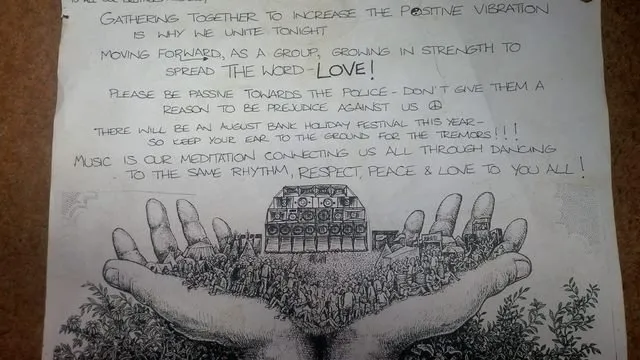 GATHERING TOGETHER TO INCREASE THE POSITIVE VIBRATION
IS WHY WE UNITE TONIGHT
MOVING FORWARD, AS A GROUP, GROWING IN STRENGTH TO
SPREAD THE WORD - LOVE!
PLEASE BE PASSIVE TOWARDS THE POLICE - DON'T GIVE THEM A
REASON TO BE PREJUDICE AGAINST US ☮
THERE WILL BE AN AUGUST BANK HOLIDAY FESTIVAL THIS YEAR -
SO KEEP YOUR EAR TO THE GROUND FOR THE TREMORS!!!
MUSIC IS OUR MEDITATION CONNECTING US ALL THROUGH DANCING
TO THE SAME RHYTHM, RESPECT, PEACE & LOVE TO YOU ALL!